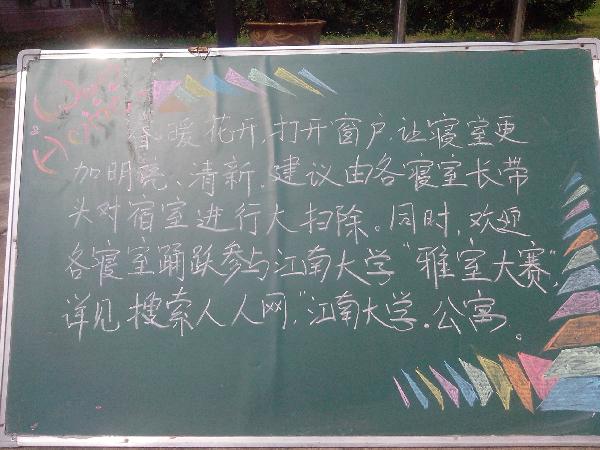 春暖花开,打开窗户,让寝室更
加明亮、清新,建议由各寝室长带
头对宿室进行大扫除。同时,欢迎
各寝室踊跃参与江南大学"雅室大赛",
详见搜索人人网,"江南大学.公寓。